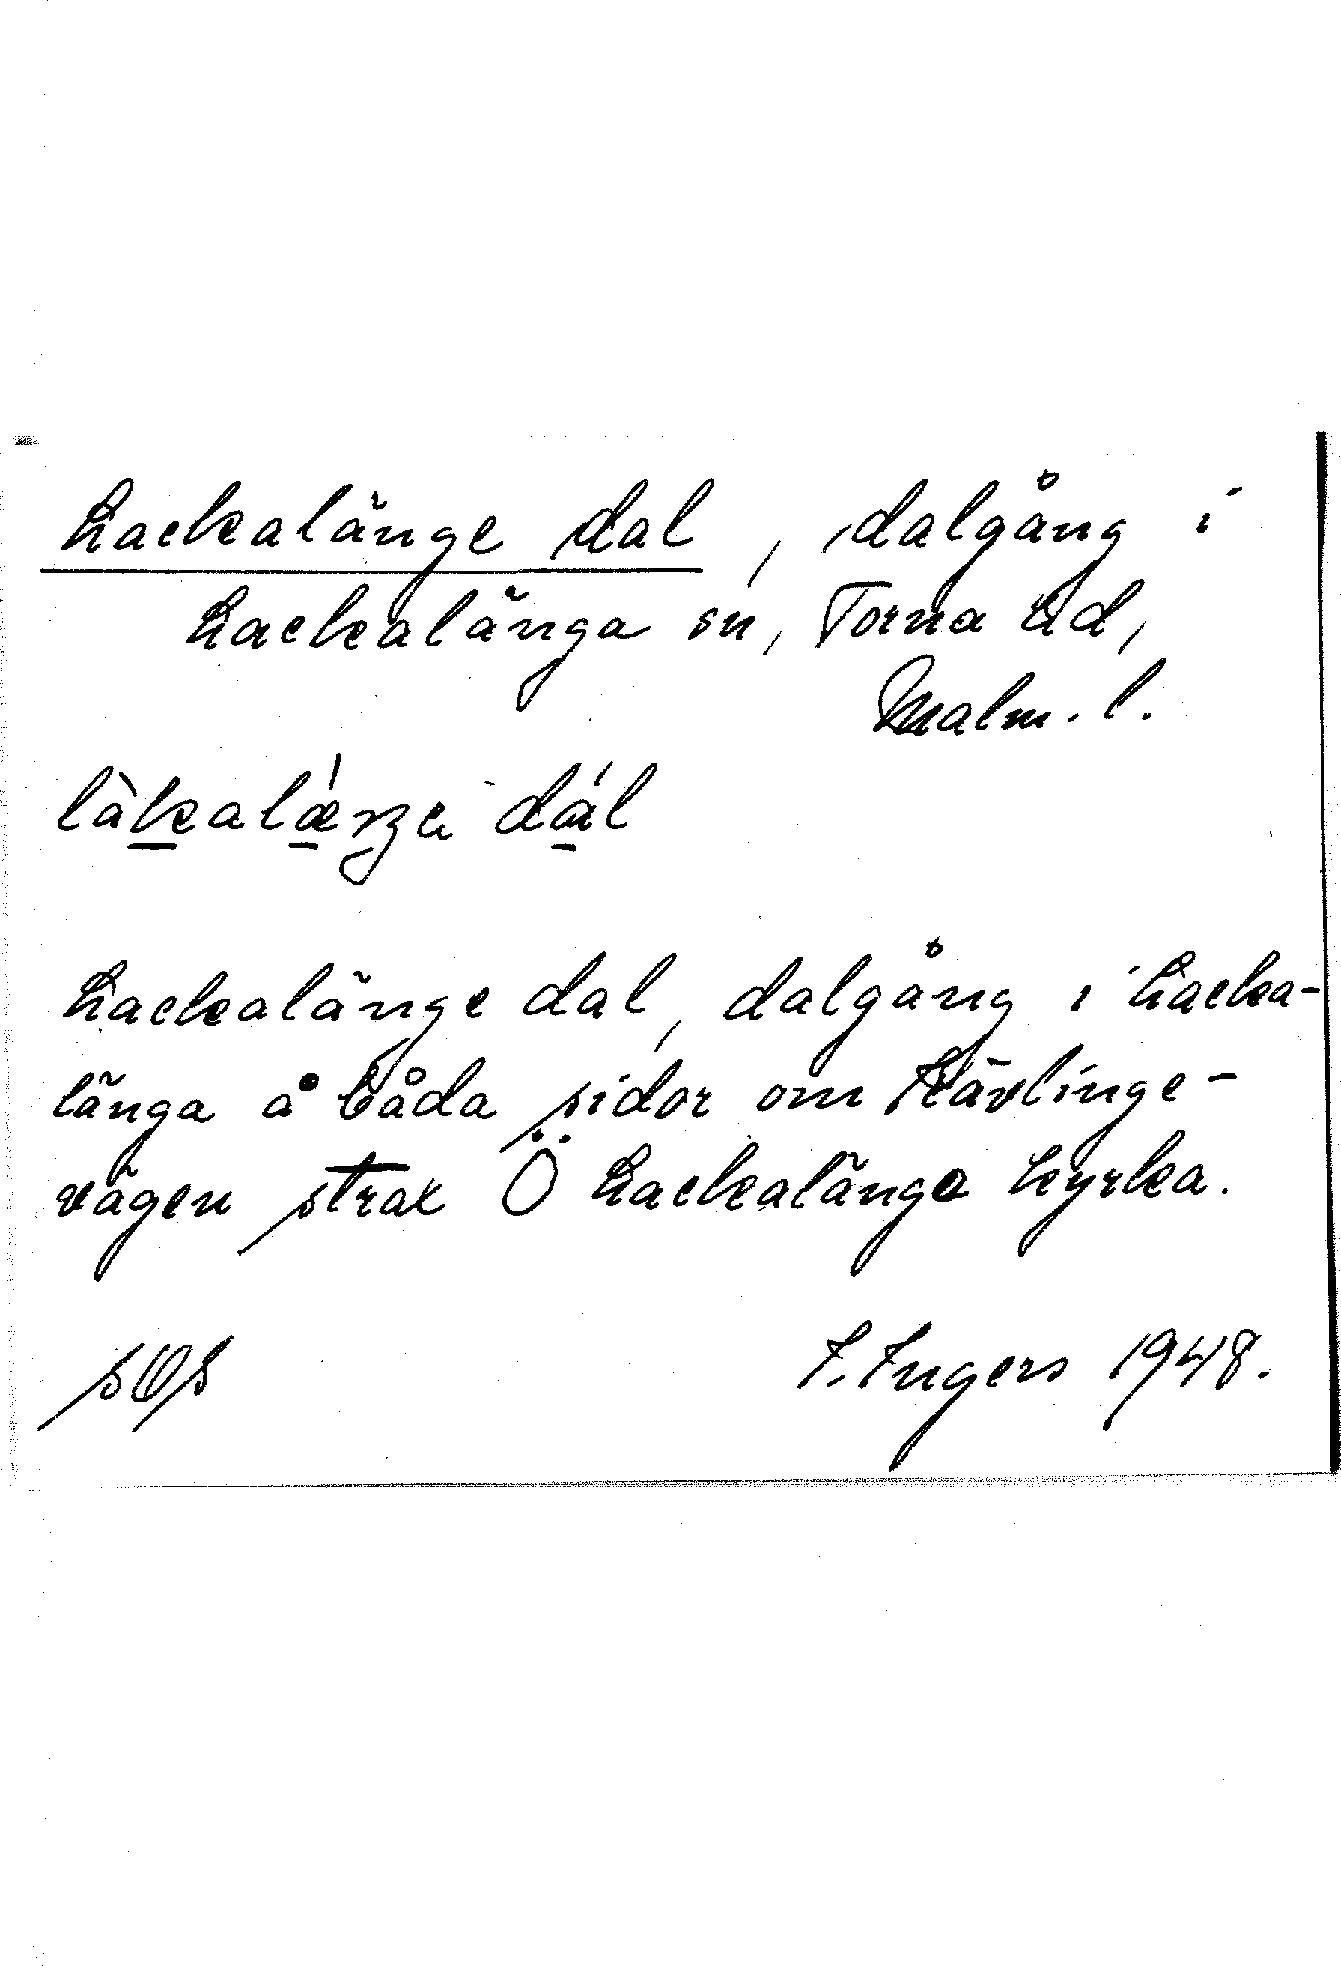 Lackalänge dal, dalgång i
Lackalänga sn, Torna hd,
Malm. l.
dál
Lackalänge dal, dalgång i Lacka-
länga å båda sidor om Kävlinge-
vägen strax Ö Lackalänga kyrka.
I. Ingers 1948.